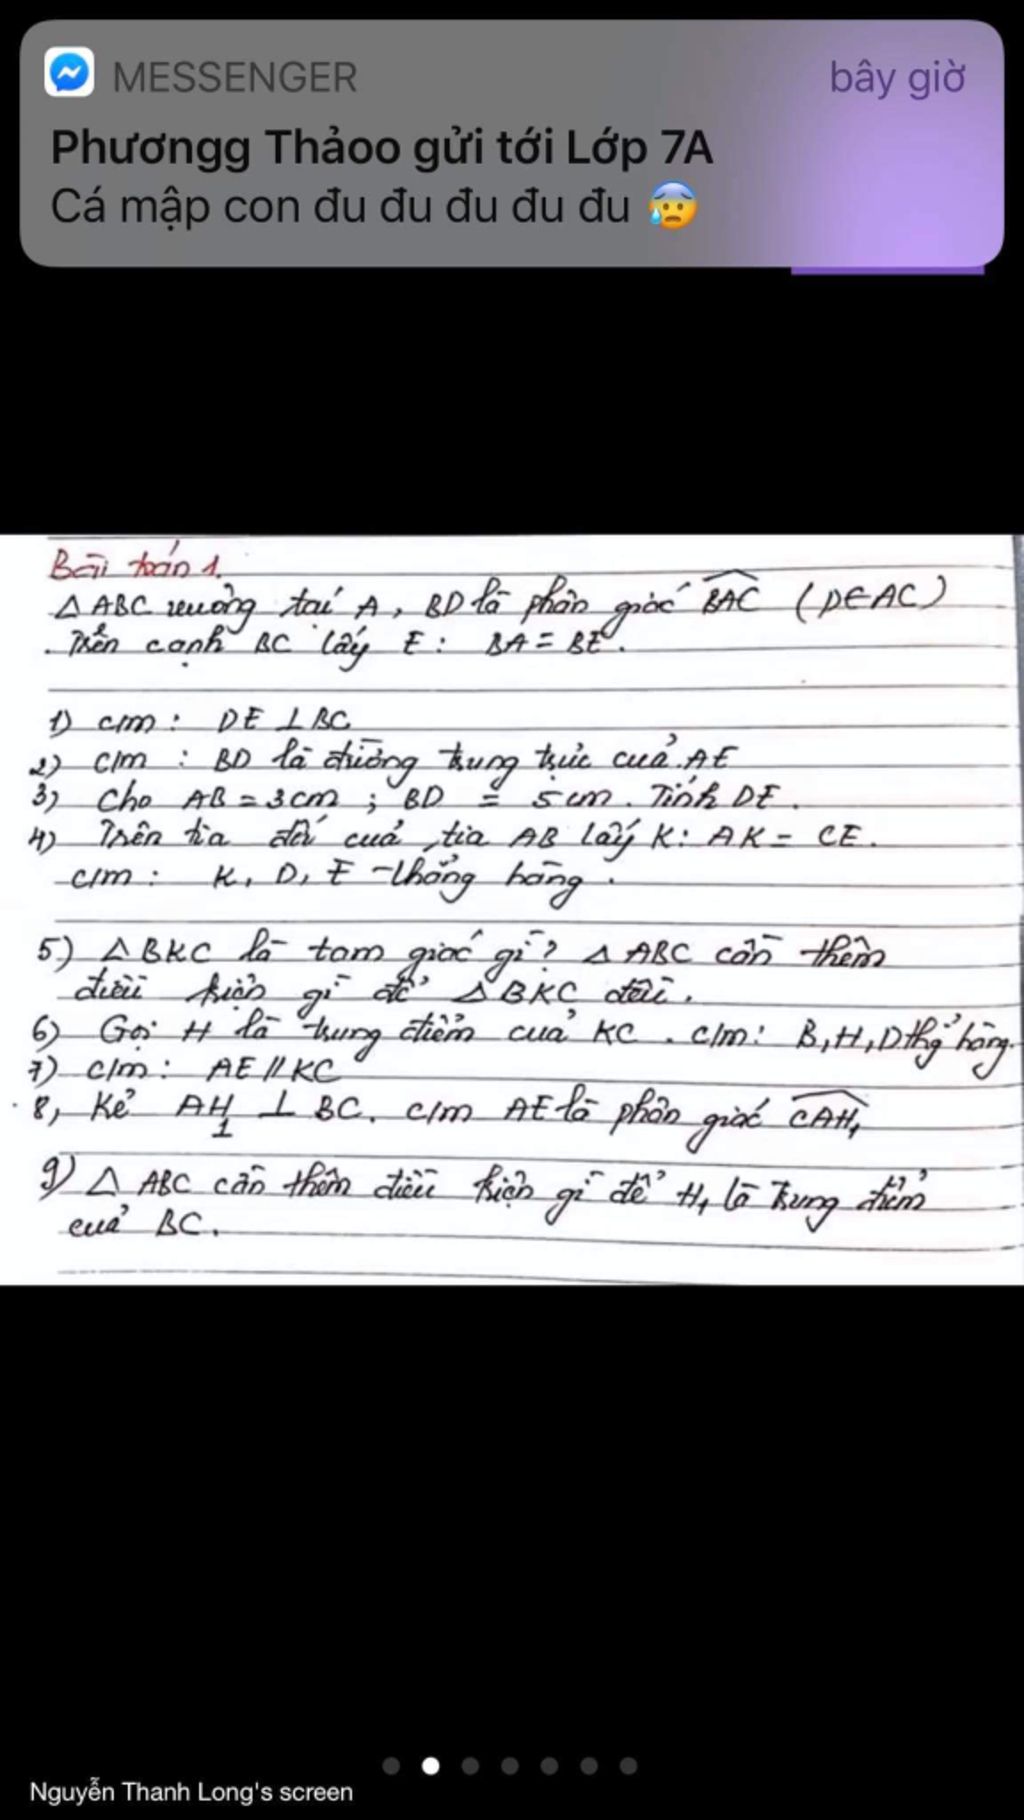 MESSENGER
bây giờ
Phươngg Thảoo gửi tới Lớp 7A
Cá mập con đu đu đu đu đu 😰
Bài toán 1.
△ ABC vuông tại A, BD là phân giác BAC (D∈AC)
. Trên cạnh BC lấy E: BA = BE.
1) c/m: DE ⊥ BC
2) c/m : BD là đường trung trực của AE
3) Cho AB = 3cm ; BD = 5cm. Tính DE.
4) Trên tia đối của tia AB lấy K: AK = CE.
c/m: K, D, E thẳng hàng.
5) △ BKC là tam giác gì? △ ABC cần thêm
điều kiện gì để △ BKC đều.
6) Gọi H là trung điểm của KC. c/m: B, H, D thg̉ hàng.
7) c/m: AE // KC
8, Kẻ AH₁ ⊥ BC. c/m AE là phân giác CAH₁
9) △ ABC cần thêm điều kiện gì để H₁ là trung điểm
của BC.
Nguyễn Thanh Long's screen